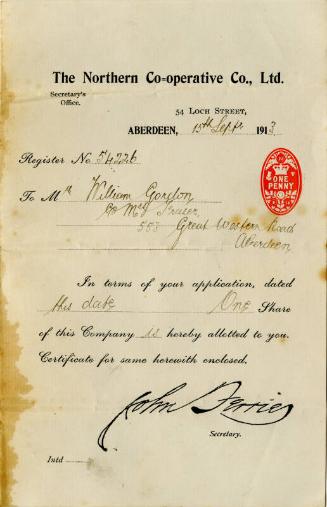 The Northern Co-operative Co., Ltd.
Secretary's
Office.
54 LOCH STREET,
ABERDEEN, 15th Sept 1913
Register No 54226
ONE
PENNY
To Mr William Gordon
c/o Mrs Fraser,
553 Great Western Road
Aberdeen
In terms of your application, dated
this date One Share
of this Company is hereby allotted to you.
Certificate for same herewith enclosed.
John Ferries
Secretary.
Intd